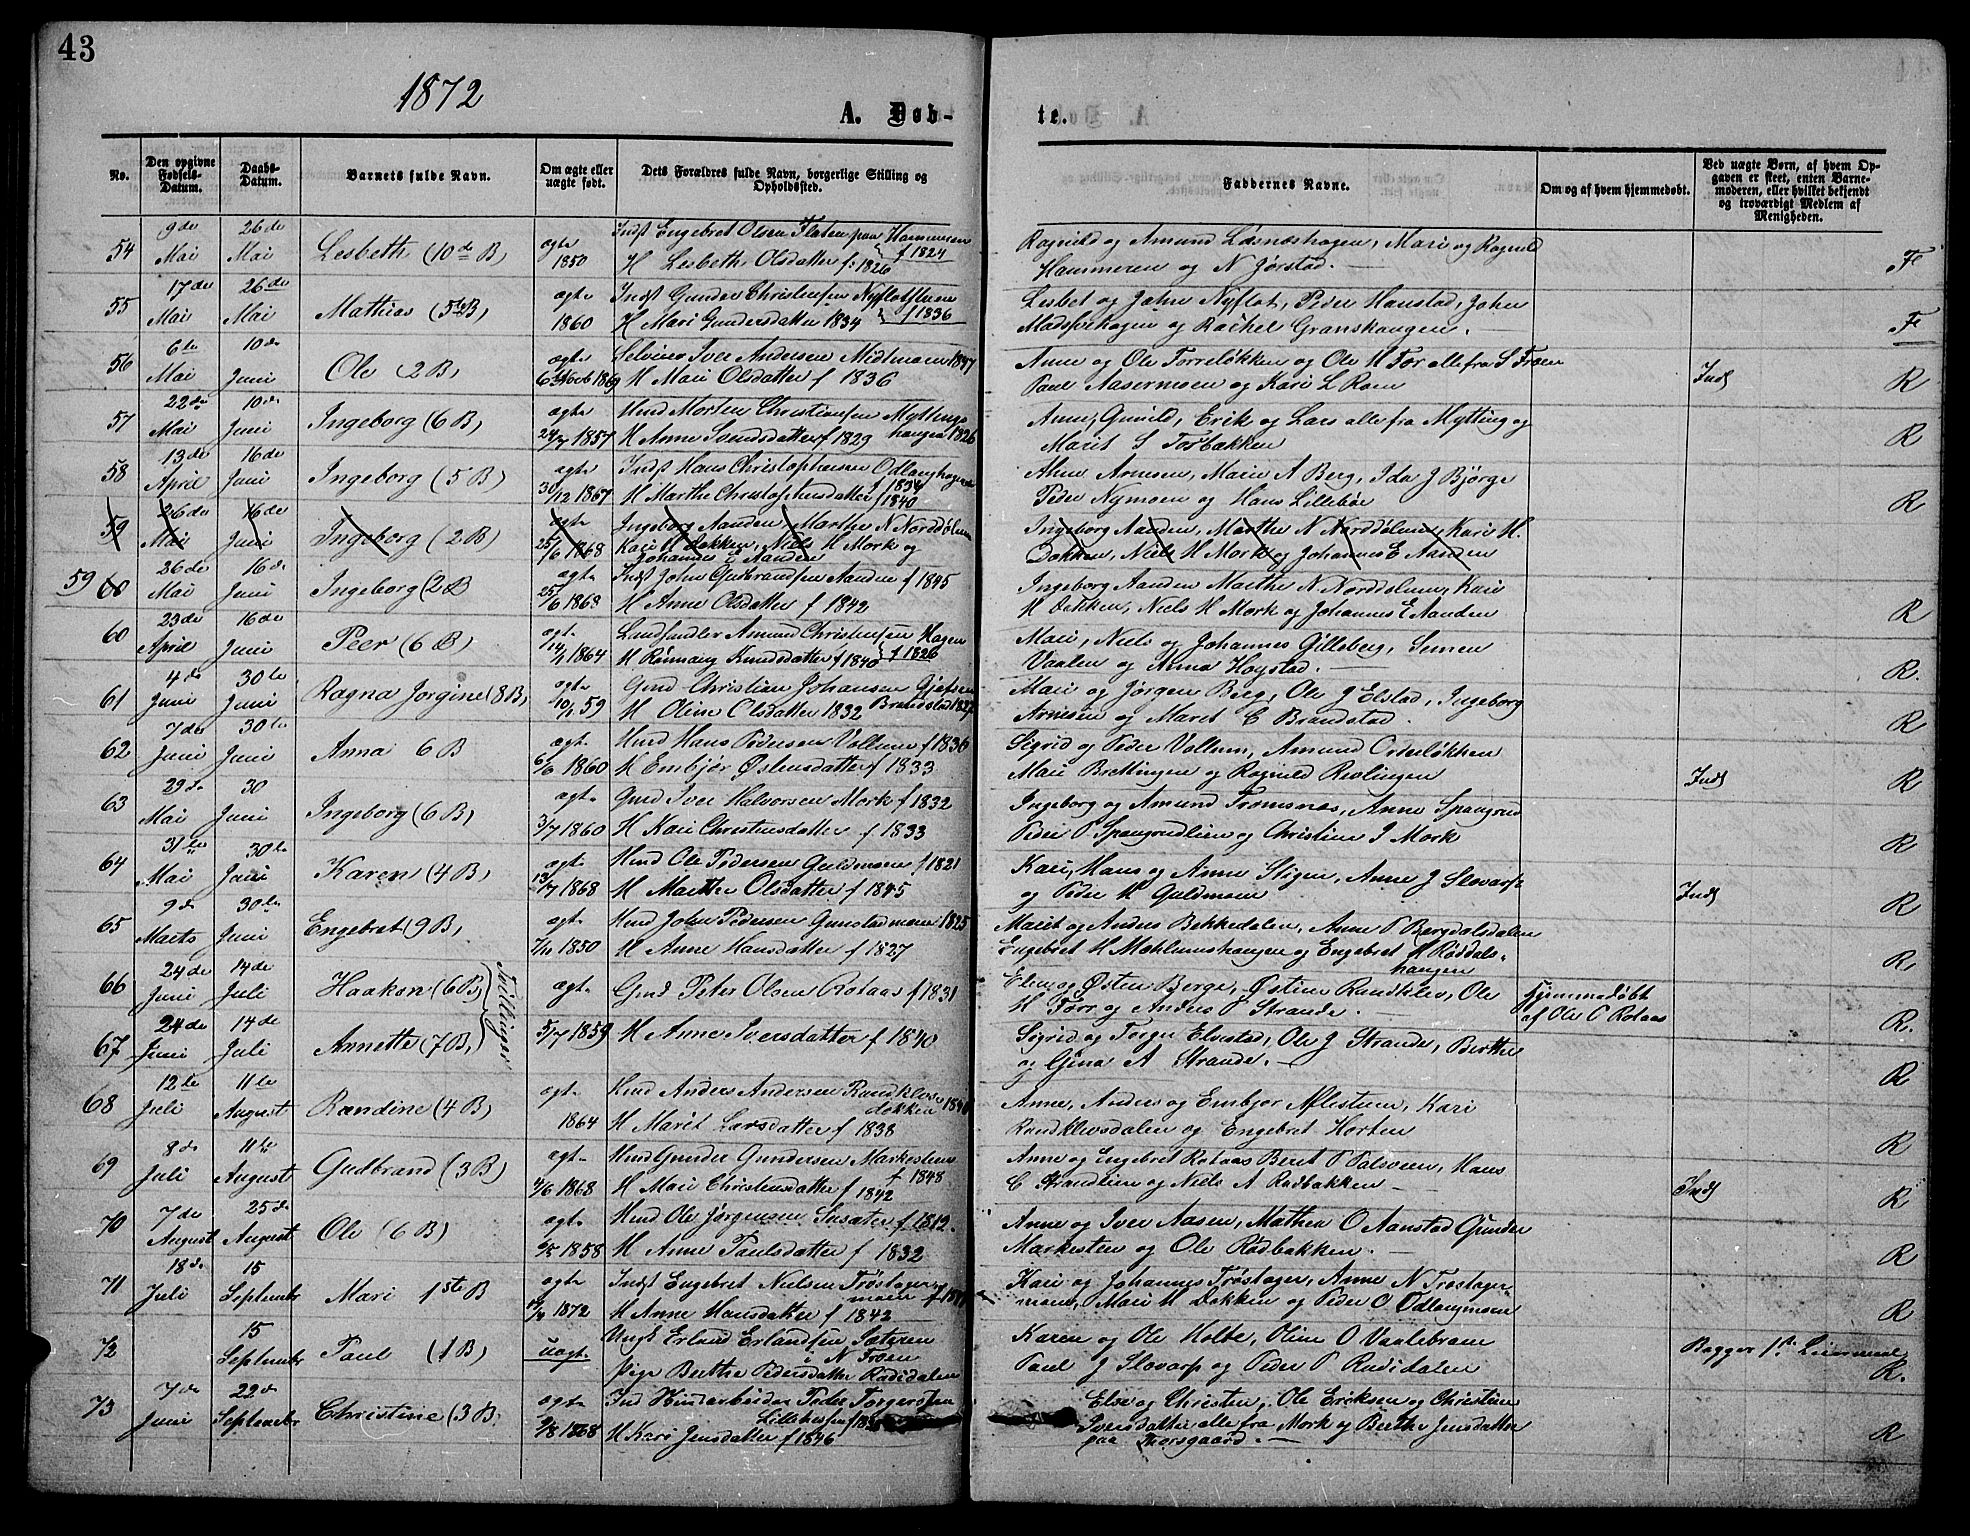 43
1872
A. Døb-
te.
No.
Den opgivne Fødsels-Datum.
Daabs-Datum.
Barnets fulde Navn.
Om ægte eller uægte født.
Dets Forældres fulde Navn, borgerlige Stilling og Opholdssted.
Faddernes Navne.
Om og af hvem hjemmedøbt.
Ved uægte Børn, af hvem Opgaven er skeet, enten Barnemoderen, eller hvilket bekjendt og troværdigt Medlem af Menigheden.
54 9de Mai 26de Mai Lesbeth (10de B) ægte 1850 Indst Engebret Olsen Flaten paa Hammeren f 1824
H Lesbeth Olsdatter f: 1826
Ragnild og Amund Løsnæshagen, Mari og Ragnild
Hammeren og N Jørstad. F
55 17de Mai 26de Mai Mathias (5te B) ægte 1860 Indst Gunder Christensen Nyflotstuen f 1836
H Mari Gundersdatter 1834
Lesbet og John Nyflot, Peder Hanstad, John
og Rachel Granskaugen. F
56 6te Mai 10de Juni Ole (2 B) ægte Selveier Iver Andersen Midtmoen 1837
H Mari Olsdatter f 1836
Anne og Ole Torreløkken og Ole H Tor alle fra S Froen
Paul Aasermoen og Kari L Roen Inds R
57 22de Mai 10de Juni Ingeborg (6 B) ægte 24/7 1857 Husmd Morten Christiansen Myttingshaugen 1826
H Anne Svendsdatter f 1829
Anne, Gunild, Erik og Lars alle fra Mytting og
Marit S Torbakken R
58 13de April 16de Juni Ingeborg (5 B) ægte 30/12 1867 Indst Hans Christophersen Odlaughagen f 1834
H Marthe Christophersdatter f 1840
Ahne Arnesen, Marie A Berg, Ida J Bjørge
Peder Nymoen og Hans Lillebøe R
59 26de Mai 16de Juni Ingeborg (2 B) ægte 25/6 1868 Ingeborg Aanden, Marthe N Norddølum
Kari H Dokken, Niels H Mork og
Johannes E Aanden
Ingeborg Aanden, Marthe N Norddølum, Kari H.
Dokken, Niels H Mork og Johannes E Aanden
59 60 26de Mai 16de Juni Ingeborg (2 B ægte 25/6 1868 Indst John Gudbrandsen Aanden f 1845
H Anne Olsdatter f 1842
Ingeborg Aanden Marthe N Norddølum, Kari
H Dokken, Niels H Mork og Johannes E Aanden R
60 23de April 16de Juni Peer (6 B) ægte 14/1 1864 Landhandler Amund Christensen Hagen f 1826
H Rønnaug Knudsdatter f 1840
Mari, Niels og Johannes Gilleberg, Simen
Vaalen og Anna Høystad. R.
61 4de Juni 30te Juni Ragna Jørgine (8 B) ægte 10/1 59 Gmd Christian Johansen Gjefsen Brandstad 1827
H Oline Olsdatter 1832
Mari og Jørgen Berg, Ole J Elstad, Ingeborg
Arnesen og Marit C Brandstad. R
62 7de Juni 30te Juni Anna 6 B ægte 6/6 1860 Husmd Hans Pedersen Vollum f 1836
H Embjør Østensdatter f 1833
Sigrid og Peder Vollum, Amund Ordeløkken
Mari Brettingen og Ragnild Reslingen Inds R
63 29de Mai 30 Juni Ingeborg (6 B) ægte 3/7 1860 Gmd Iver Halvorsen Mork f 1832
H Kari Christensdatter f 1833
Ingeborg og Amund Tromsnæs, Anne Spangrud
Peder P Spangrudlien og Christine J Mork R
64 31te Mai 30te Juni Karen (4 B) ægte 13/7 1868 Husmd Ole Pedersen Guldmoen f 1821
H Marthe Olsdatter f 1845
Kari, Hans og Anne Stigen, Anne J Slovarp
og Peder H Guldmoen Inds R
65 9de Marts 30te Juni Engebret (9 B) ægte 7/11 1850 Husmd John Pedersen Gunstadmoen 1825
H Anne Hansdatter f 1827
Marit og Anders Bekkedalen, Anne P Bergdalsdalen
Engebret H Mæhlumshaugen og Engebret H Røddels-
haugen R
66 24de Juni 14de Juli Haakon (6 B) Tvillinger ægte Gmd Peter Olsen Rotaas f 1831
Elen og Østen Berge, Østine Randklev, Ole
H Torr og Anders P Strande. Hjemmedøbt af Ole O Rotaas R.
67 24de Juni 14de Juli Annette (7 B) 5/7 1859 H Anne Iversdatter f 1840
Sigrid og Torger Elvestad, Ole J Strande, Berthe
og Gina A Strande. R
68 12te Juli 11te August Randine (4 B) ægte 1864 Husmd Anders Andersen Randklevs-
dokken 1840
H Marit Larsdatter f 1838
Anne, Anders og Embjør Aflestuen, Kari
Randklevsdalen og Engebret Horten R
69 8de Juli 11te August Gudbrand (3 B) ægte 4/6 1868 Husmd Gunder Gundersen Markestuen
f 1848
H Mari Christensdatter f 1842
Anne og Engebret Rotaas Beret P Palsveen, Hans
C Strandlien og Niels A Rødbakken Inds R
70 7de August 25de August Ole (6 B) ægte 9/5 1858 Husmd Ole Jørgensen Susæter f 1812.
H Anne Paulsdatter f 1832
Anne og Iver Aasen, Mathea O Aanstad Gunder
Markesten og Ole Rødbakken. R
71 18de Juli 15 September Mari 1ste B ægte 1872 Indst Engebret Nielsen Trøstager-
moen
H Anne Hansdatter f 1842
Kari og Johannes Trøstager, Anne N Trøstager
moen, Mari H Dokken og Peder O Odlaugmoen R
72 15 September Paul (1 B) uægte Ungk Erland Erlandsen Sæteren
i N Froen
Pige Berthe Pedersdatter Rødidalen
Karen og Ole Holte, Oline O Vaalebroen
Paul J Slovarp og Peder P Rudidalen Begges 1ste Leiermaal R.
73 7de Juni 22de September Christine (3 B) ægte 9/8 1868 Ind Huusarbeider Peder Torgersen
H Kari Jensdatter f 1846
Else og Christen, Ole Eriksen og Christine
Iversdatter alle fra Mork og Berthe Jensdatter
paa Thorsgaard. R